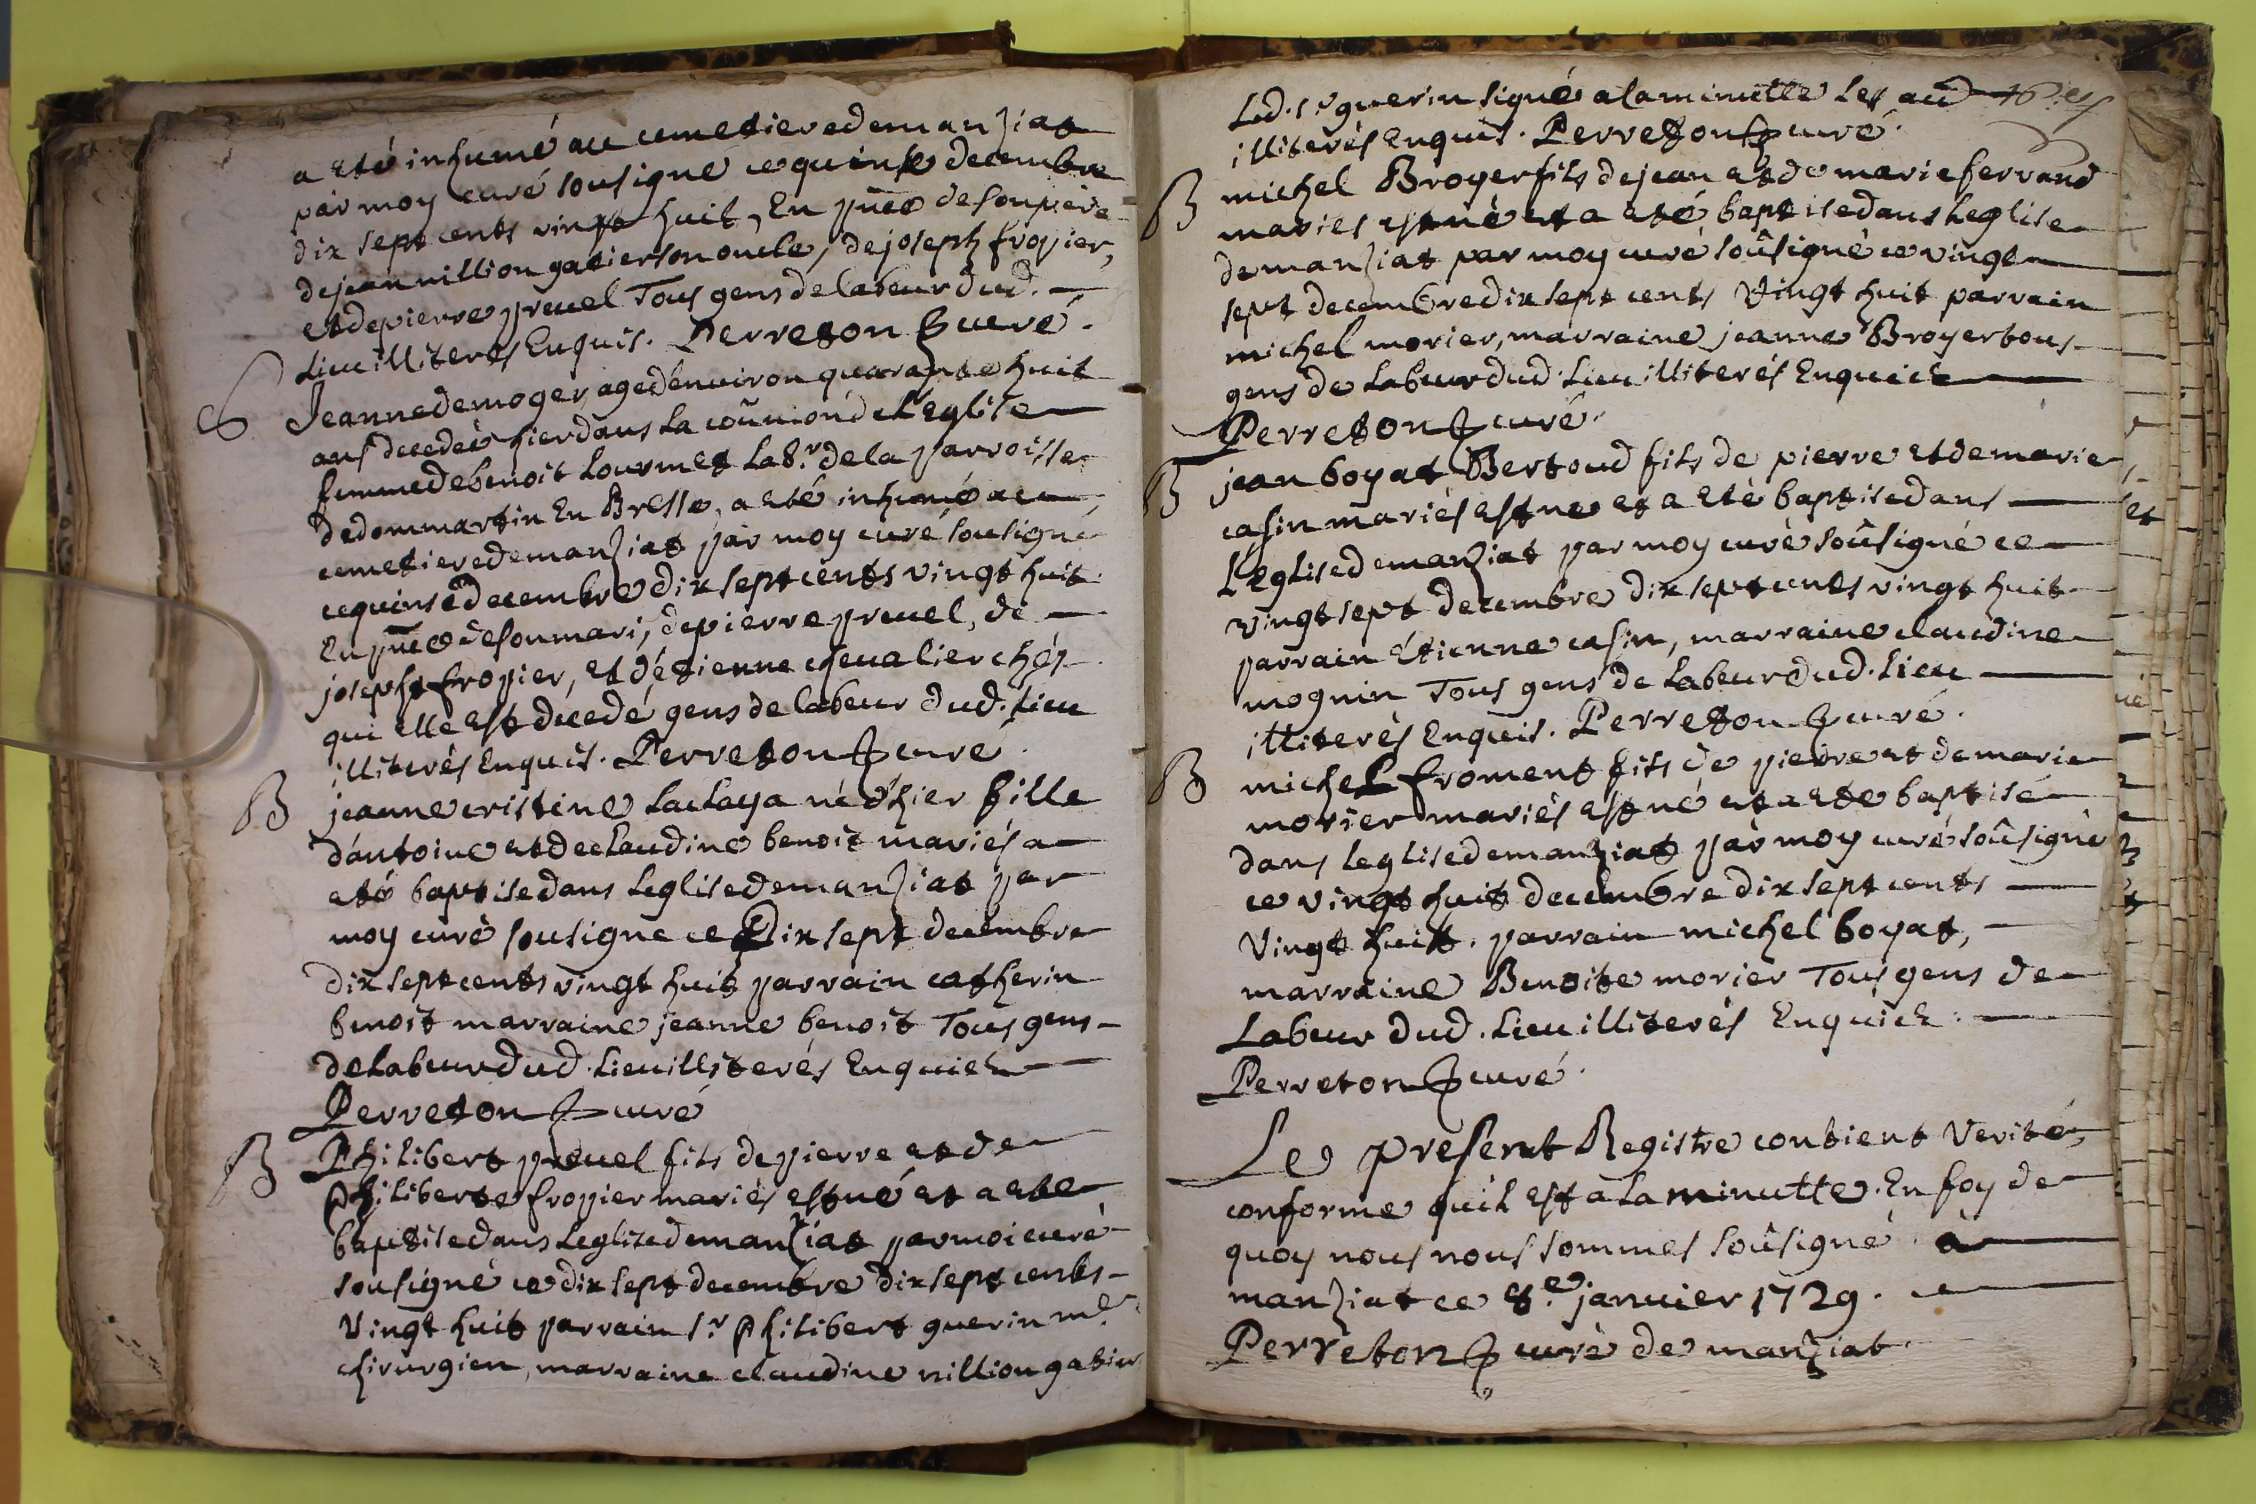 a eté inhumé au cemetiere de manziat
par moy curé sousigné ce quinse decembre
dix sept cents vingt huit, En pñce de son pere
de jean nillion gatier son oncle, de joseph fropier,
et de pierre preuel Tous gens de labeur dud.
Lieu illiterés Enquis. Perreton curé.
S Jeanne demoger, aged environ quarante huit
ans decedeé hier dans la coũmion de L'eglise
femme de benoit Lourmet Lab.r de la parroisse
de dommartin En Bresse, a eté inhumé au
cemetiere de manziat par moy curé sousigné
ce quinse decembre dix sept cents vingt huit
En pñce de son mari, de pierre preuel, de
joseph fropier, et d'étienne cheualier chés
qui elle est decedé gens de labeur dud. Lieu
illiterés Enquis. Perreton curé.
B jeanne cristine Laclaya née hier fille
d'antoine et de claudine benoit mariés a
eté baptise dans Leglise de manziat par
moy curé sousigne ce Dix sept decembre
dix sept cents vingt huit parrain catherin
benoit marraine jeanne benoit Tous gens
de Labeur dud. Lieu illiterés Enquich
Perreton curé
B Philibert preuel fils de pierre et de
philiberte fropier mariés est né et a eté
baptise dans Leglise de manziat par moi curé
sousigné ce dix sept decembre dix sept cents
Vingt huit parrain s.r philibert guerin m.e
chirurgien, marraine claudine nillion gatier
Led. s.r guerin signé a la minutte Les aud
illiterés Enquis. Perreton curé.
B michel Broyer fils de jean et de marie ferrand
mariés est né et a eté baptise dans Leglise
de manziat par moy curé soûsigné ce vingt
sept decembre dix sept cents Vingt huit parrain
michel morier, marraine jeanne Broyer tous
gens de Labeur dud. Lieu illiterés Enquich
Perreton curé.
B jean boyat Bertoud fils de pierre et de marie
casin mariés est né et a eté baptise dans
L'eglise de manziat par moy curé soûsigné ce
vingt sept decembre dix sept cents vingt huit
parrain étienne casin, marraine claudine
moguin Tous gens de Labeur dud. Lieu
illiterés Enquis. Perreton curé.
B michel froment fils de pierre et de marie
morier mariés est né et a ete baptisé
dans leglise de manziat par moy curé soûsigné
ce vingt huit decembre dix sept cents
Vingt huit. parrain michel boyat,
marraine Benoite morier Tous gens de
Labeur dud. Lieu illiterés Enquich.
Perreton curé.
Le present Registre contient Verité,
conforme quil est a La minutte. En foy de
quoy nous nous sommes soûsigné à
manziat ce 8.e janvier 1729.
Perreton curé de manziat.